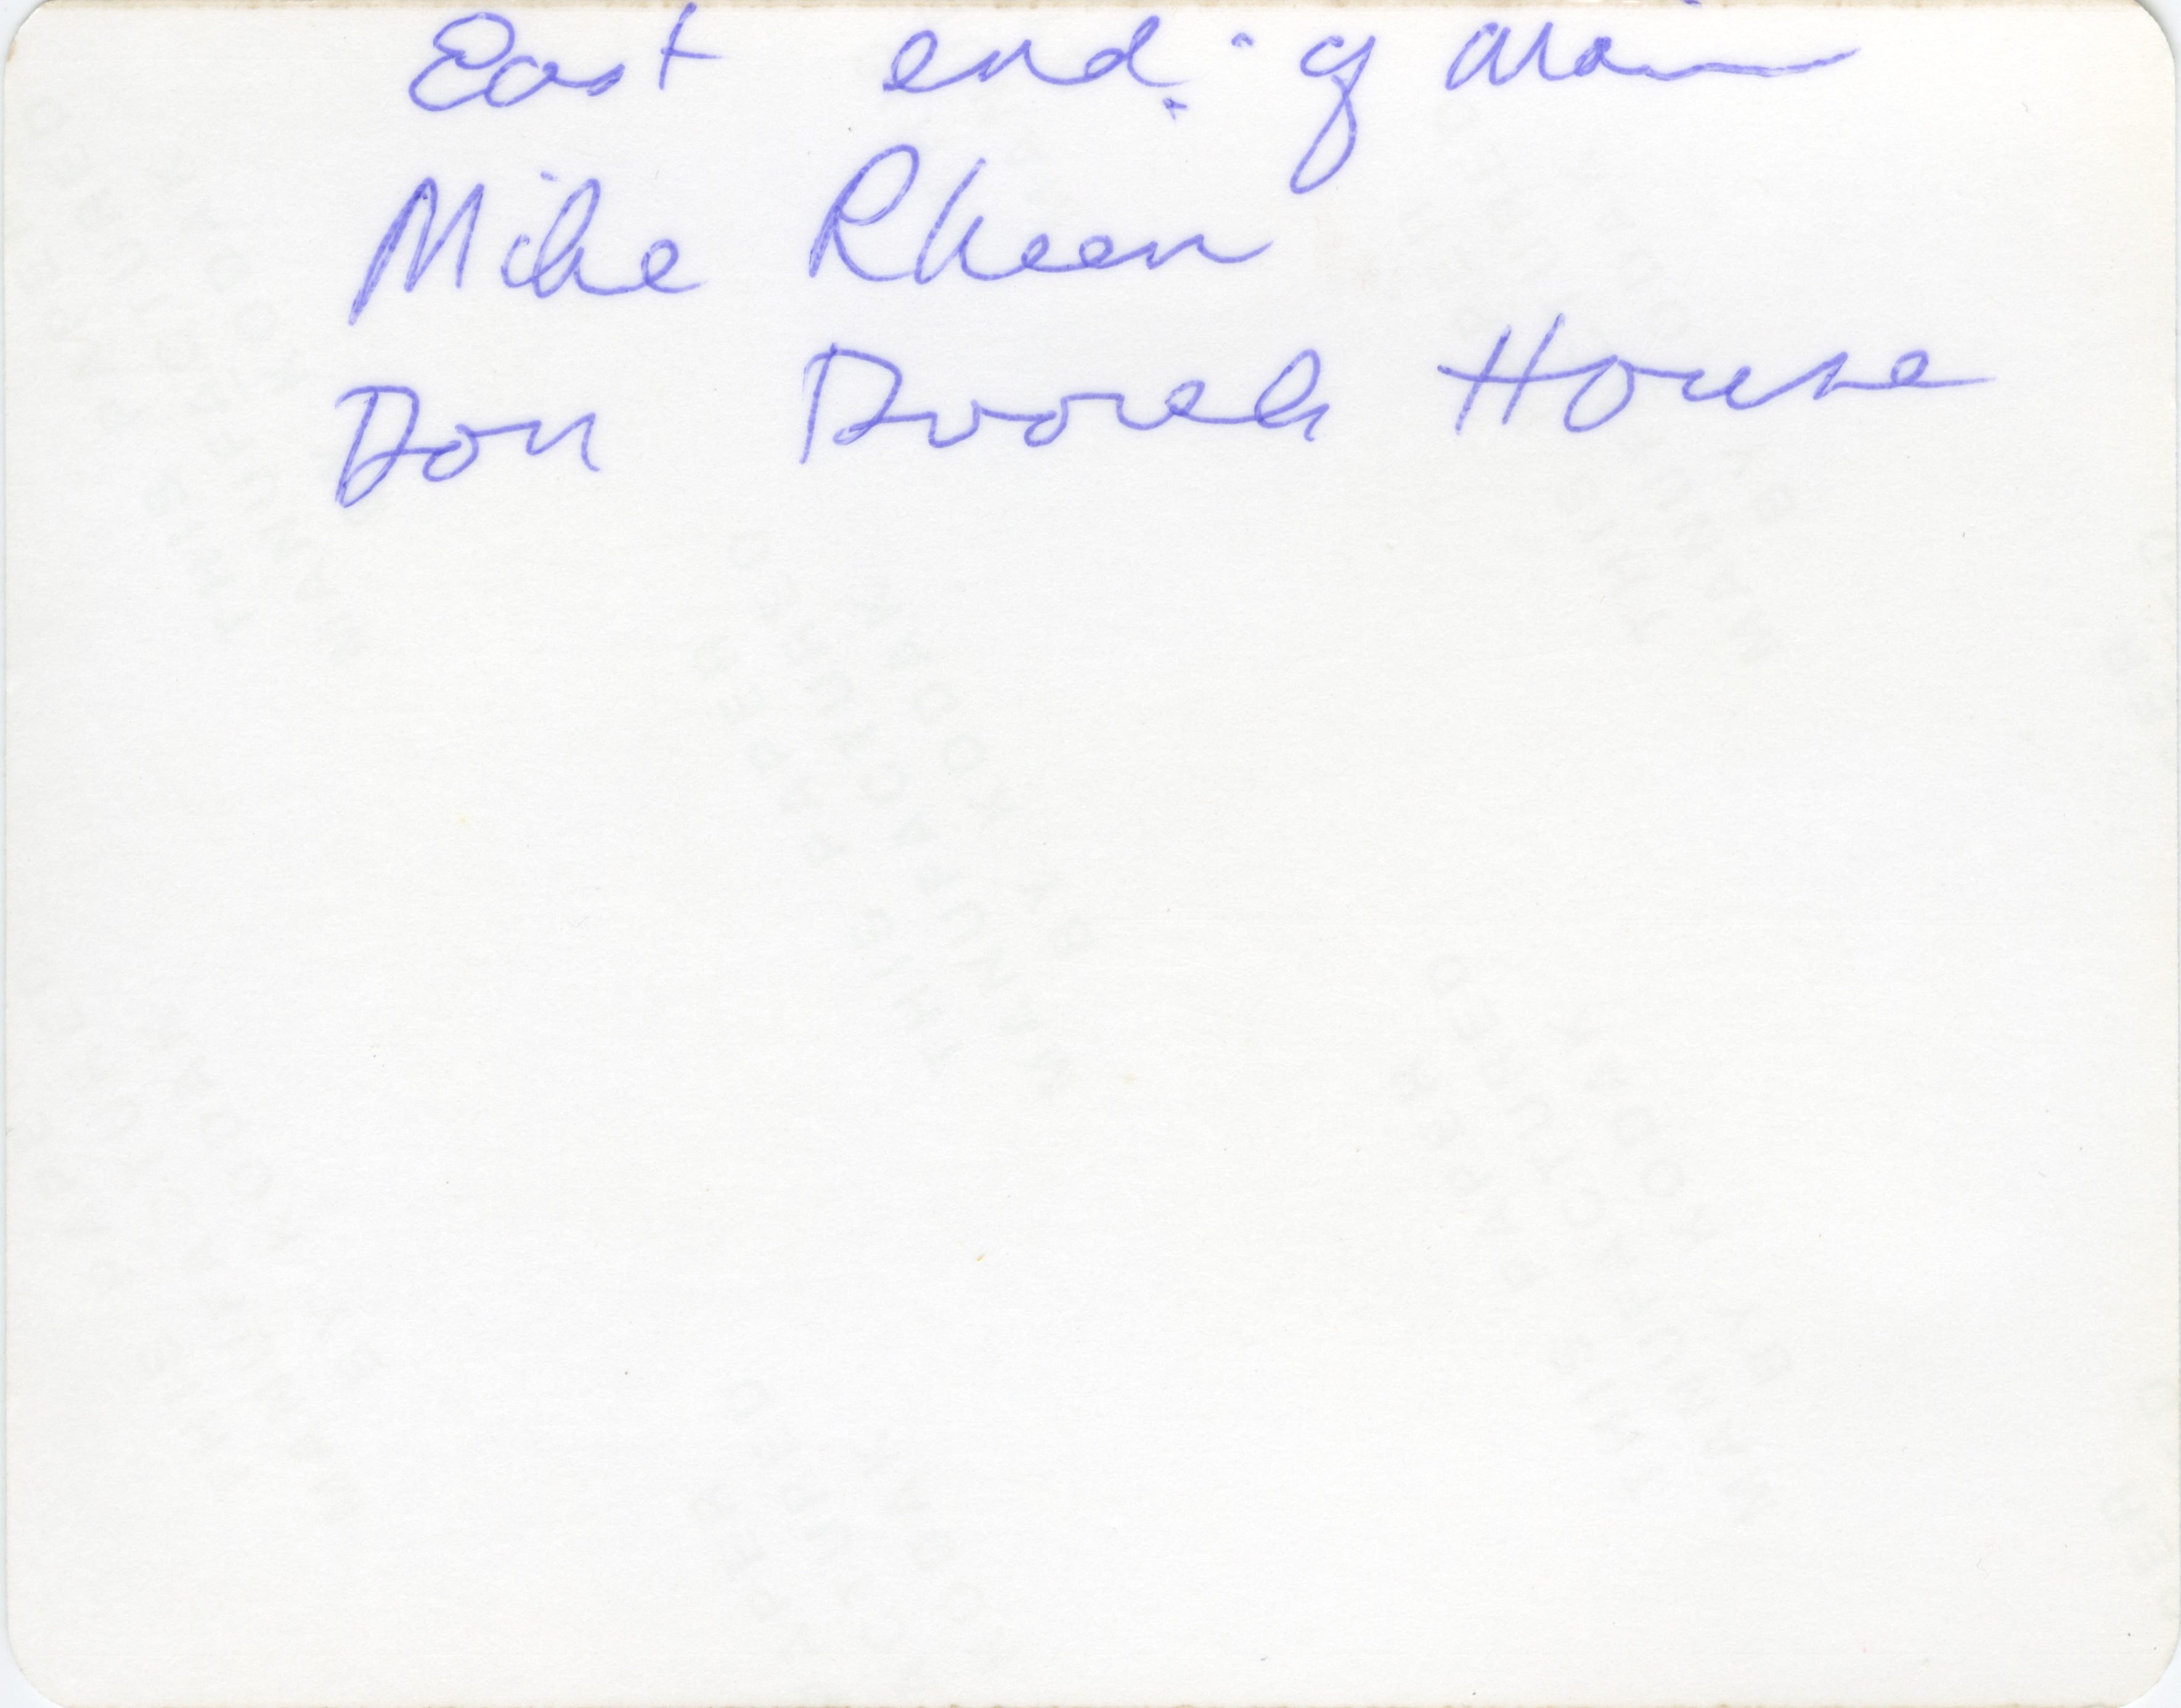 East end of Main
Mike Rheen
Don House
THIS PAPER
MANUFACTURED
BY KODAK